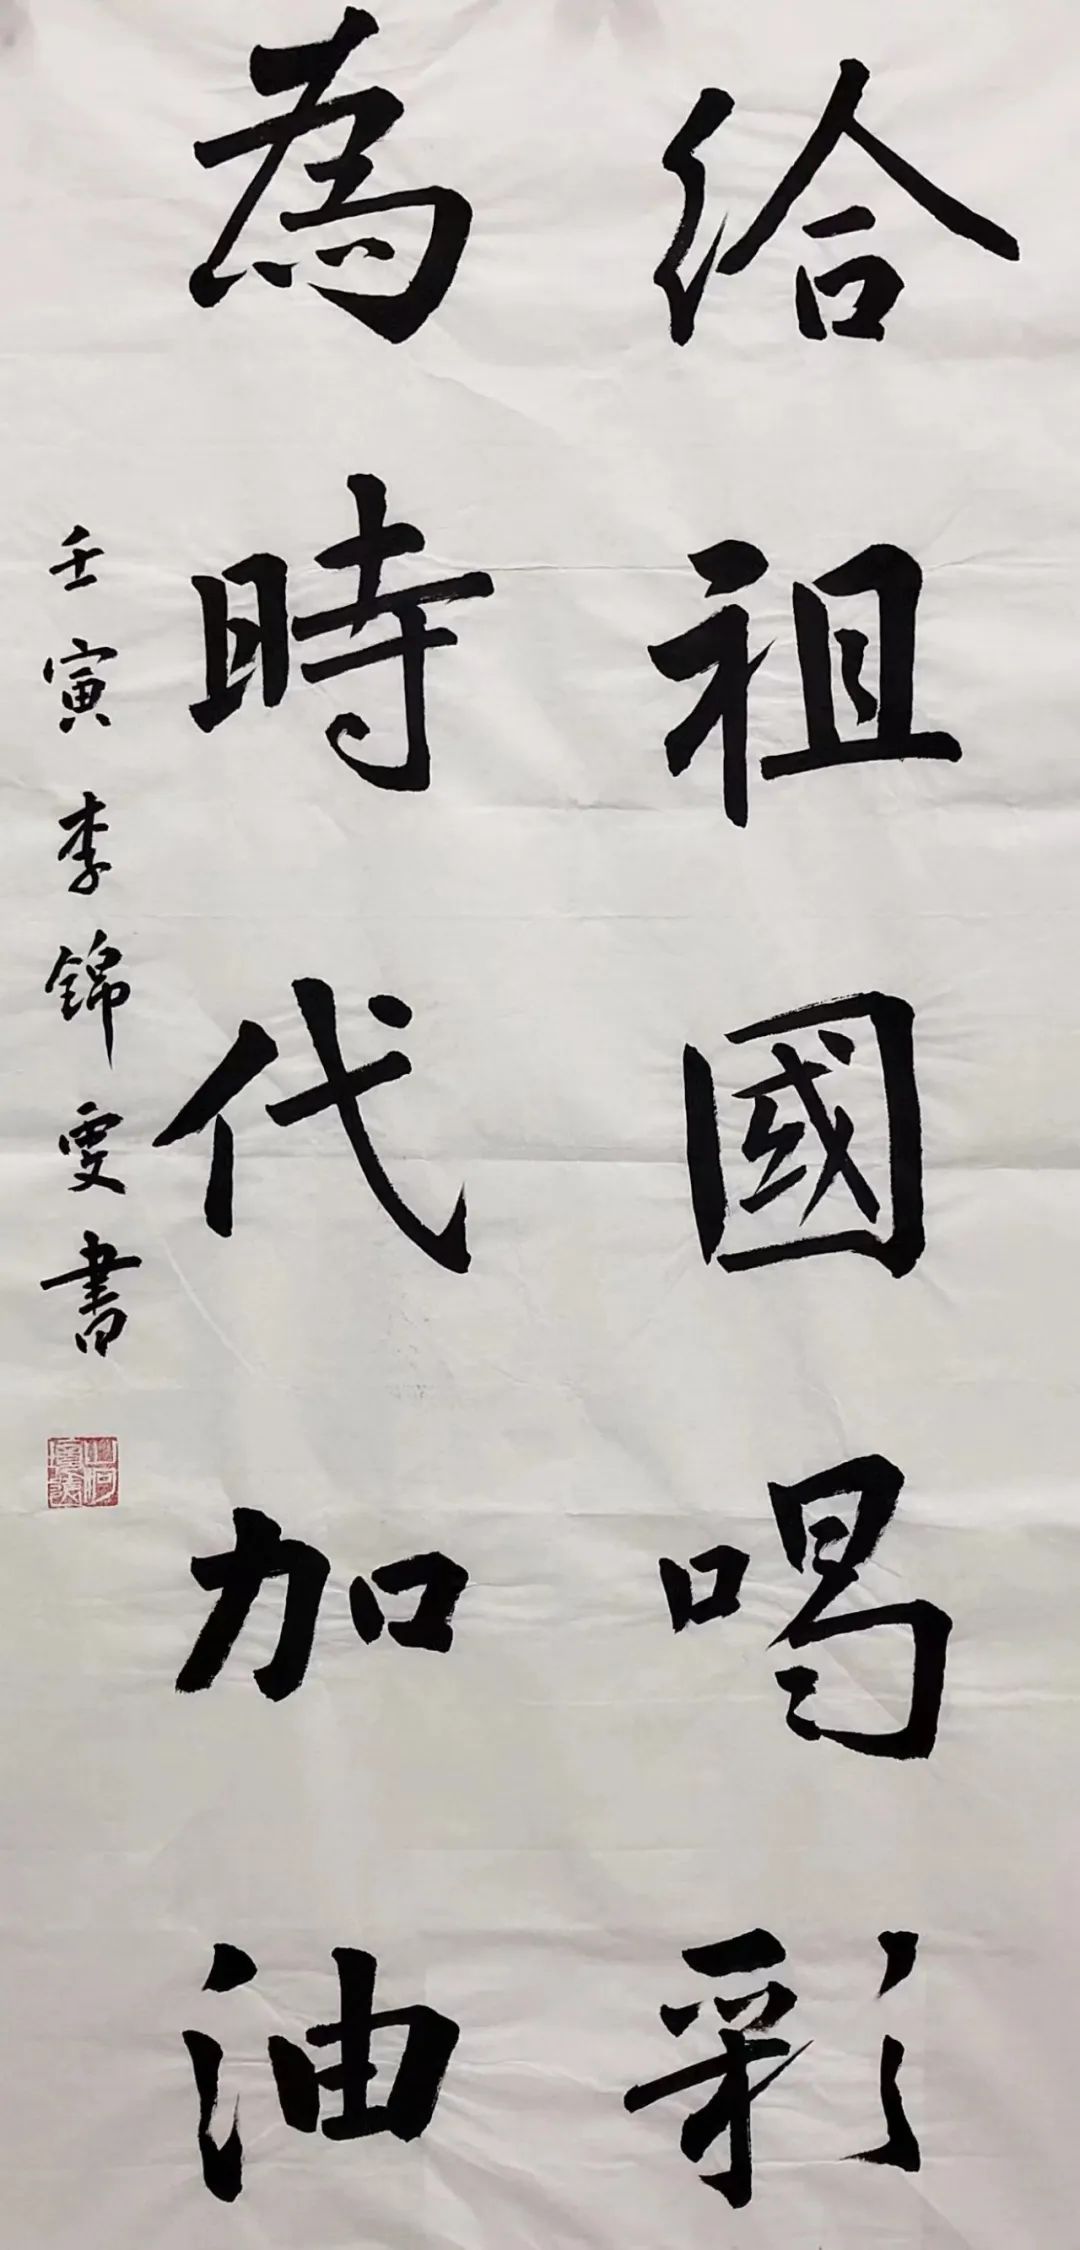 給祖國喝彩
為時代加油
壬寅李錦雯書